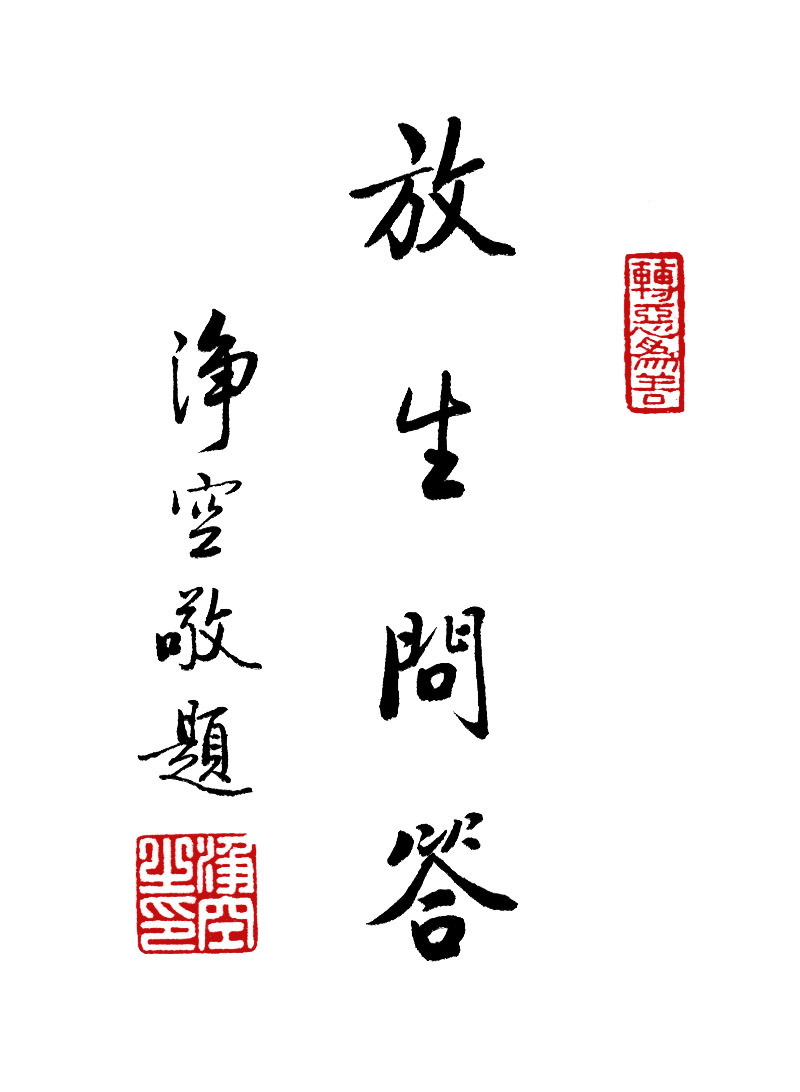 轉惡爲善
放生問答
淨空敬題
淨空
之印